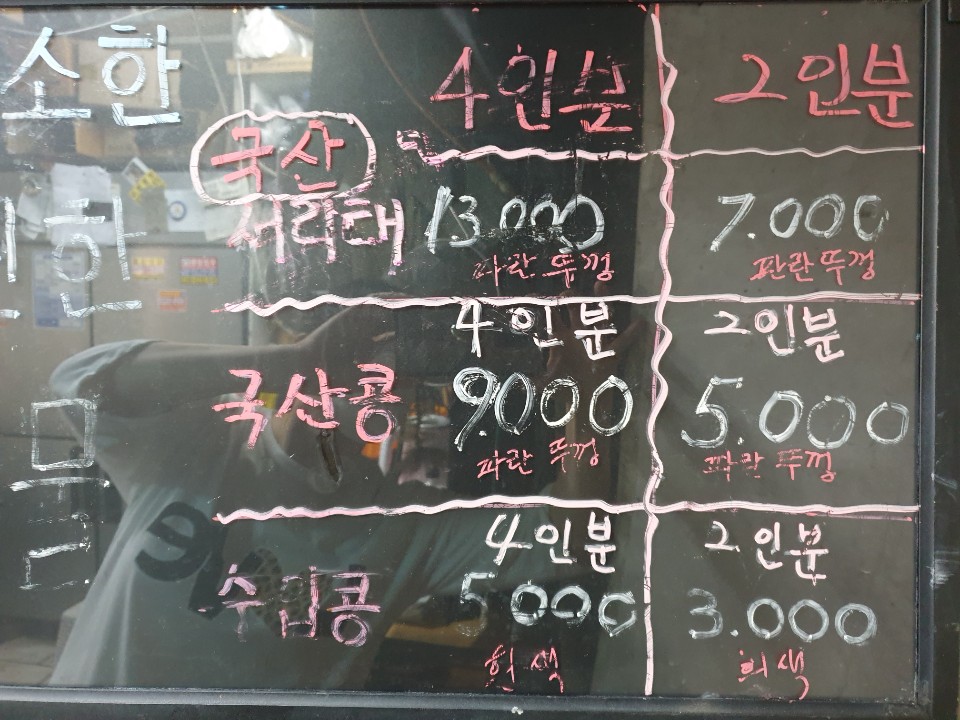 소한
4인분 2인분
국산
서리태 13.000 7.000
파란 뚜껑 판란 뚜껑
4인분 2인분
국산콩 9.000 5.000
파란 뚜껑 파란 뚜껑
4인분 2인분
수입콩 5.000 3.000
흰색 희색